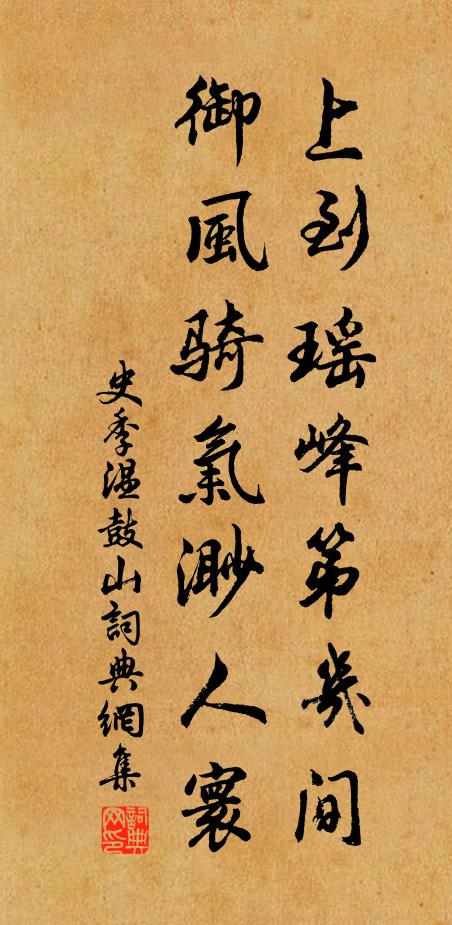 上到瑶峰第幾间
御風骑氣渺人寰
史季温鼓山詞典網集
詞典网印